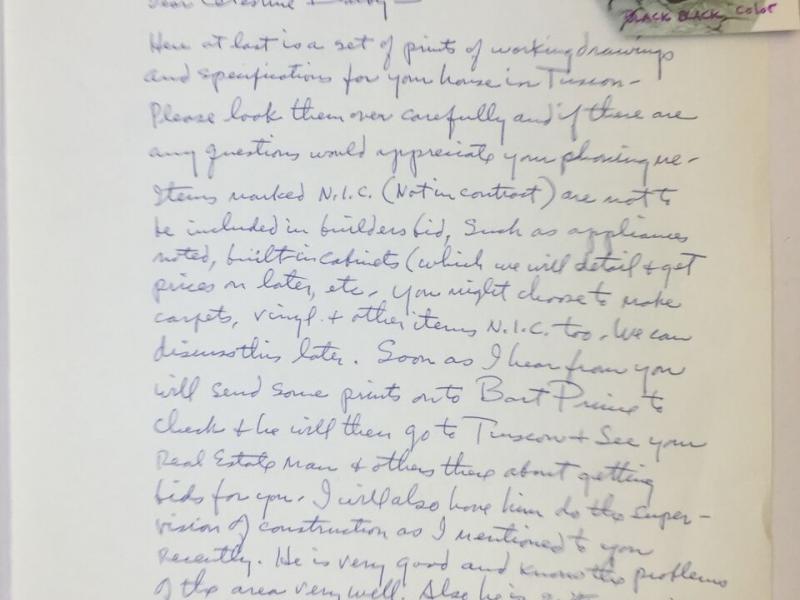 Dear Celestine +
BLACK BLACK COLOR
Here at last is a set of prints of working drawings
and specifications for your house in Tuscon -
Please look them over carefully and if there are
any questions would appreciate your phoning me -
Items marked N.I.C. (Not in contract) are not to
be included in builders bid, Such as appliances
noted, built-in cabinets (which we will detail + get
prices on later, etc. You might choose to make
carpets, vinyl + other items N.I.C. too. We can
discuss this later. Soon as I hear from you
will send some prints onto Bart Prince to
check + he will then go to Tuscon + See your
Real Estate Man + others there about getting
bids for you. I will also have him do the super-
vision of construction as I mentioned to you
recently. He is very good and knows the problems
of the area very well. Also he is a